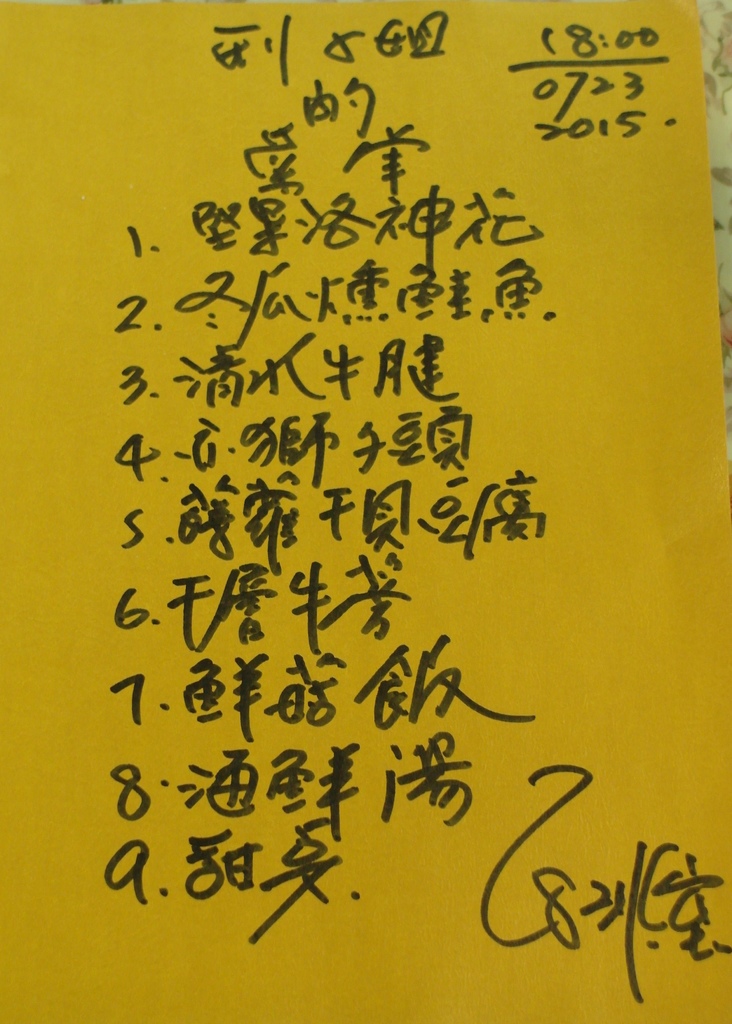 18:00
0723
2015.
的
菜單
1. 堅果洛神花
2. 冬瓜燻鮭魚.
3. 清水牛腱
4. 獅子頭
5. 干貝豆腐
6. 千層牛蒡
7. 鮮菇飯
8. 海鮮湯
9. 甜